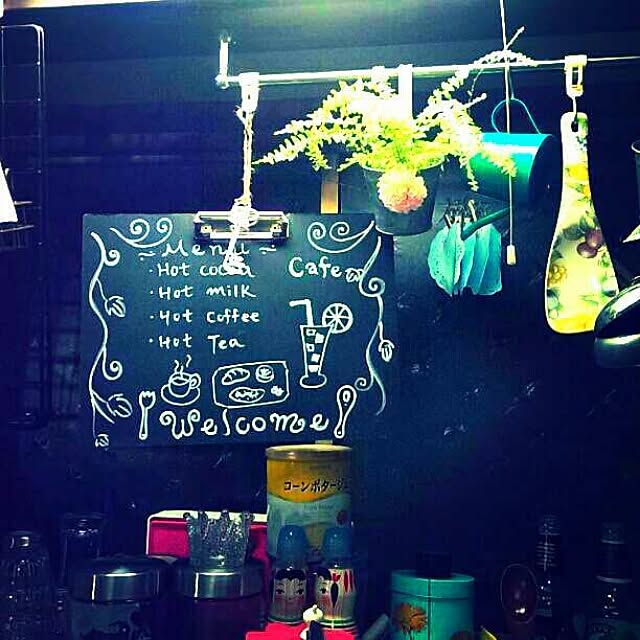 ~ Menu ~
・Hot cocoa
・Hot milk
・Hot coffee
・Hot Tea
Cafe
Welcome
コーンポタージュ